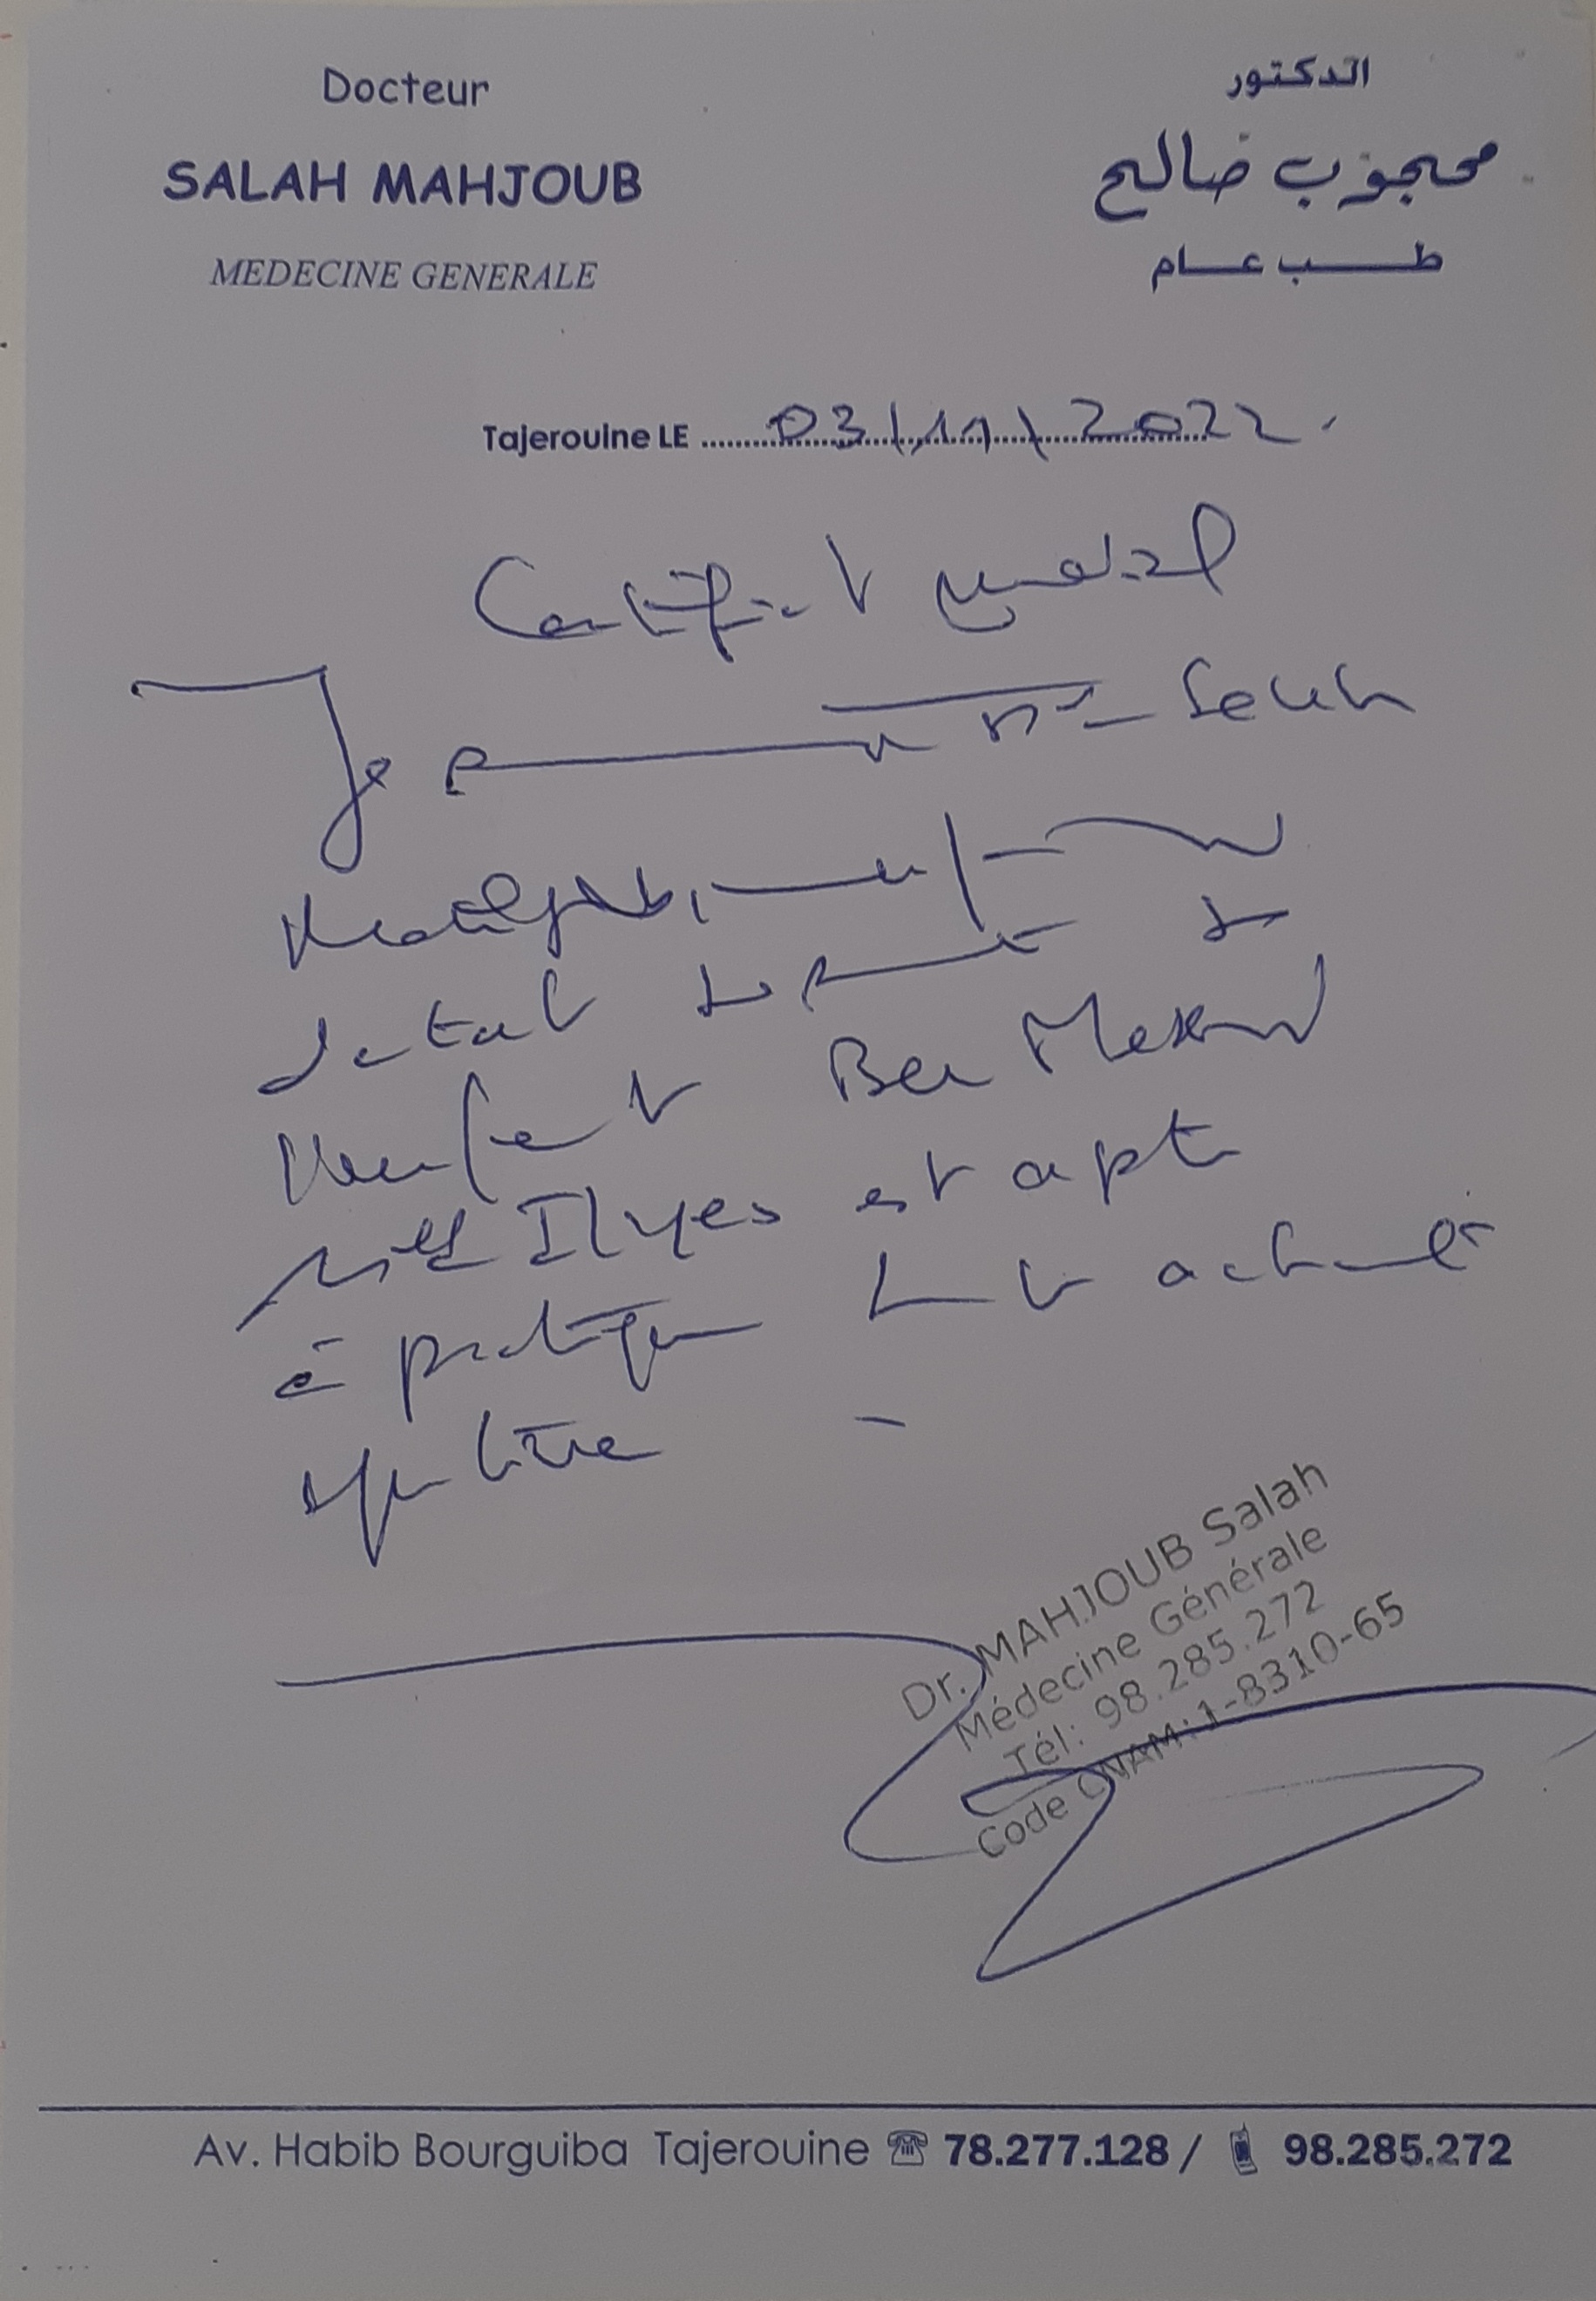 Docteur
SALAH MAHJOUB
MEDECINE GENERALE
الدكتور
محجوب صالح
طب عام
Tajerouine LE 03/11/2022
Certificat médical
Je Dr Salah
Mahjoub,
état de
l'enfant Ben
Med Ilyes est apte
à pratiquer activité
sportive
Dr. MAHJOUB Salah
Médecine Générale
Tél: 98.285.272
Code CNAM: 1-8310-65
Av. Habib Bourguiba Tajerouine 78.277.128 / 98.285.272